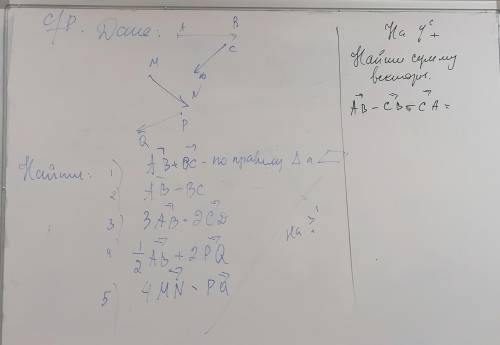 С/Р. Дано:
A B
C
M D
N
P
Q
Найти:
1) AB + BC - по правилу Δ и ▱
2) AB - BC
3) 3AB - 2CD
4 1/2 AB + 2PQ
5) 4MN - PQ
На
На "4"
Найти сумму
векторов.
AB - CB + CA =